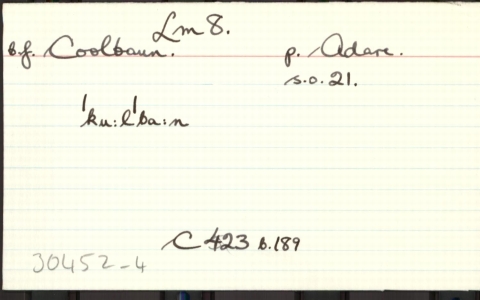 Lm 8.
b.f. Coolbaun. p. Adare.
s.o. 21.
ˈku:lˈba:n
C 423 b.189
30452-4